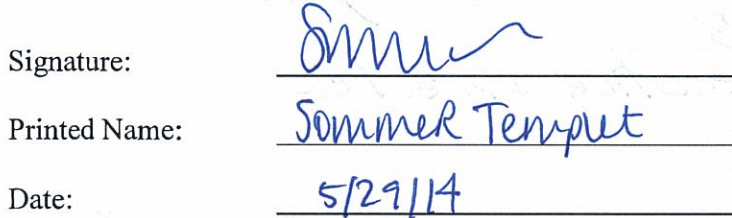 Signature:
Printed Name: Sommer Templet
Date: 5/29/14